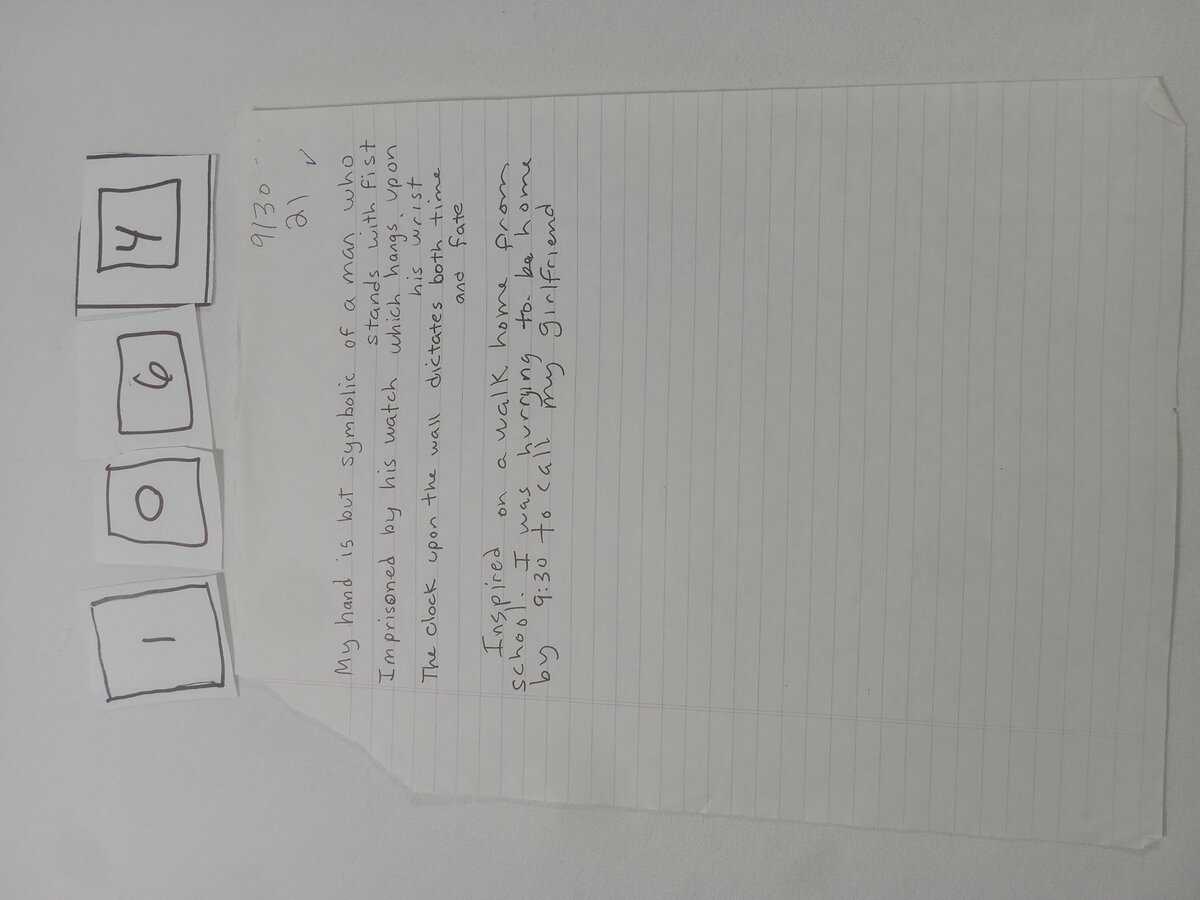 1 0 6 4
9/30
21
My hand is but symbolic of a man who
stands with fist
Imprisoned by his watch which hangs upon
his wrist
The clock upon the wall dictates both time
and fate
Inspired on a walk home from
school. I was hurrying to be home
by 9:30 to call my girlfriend